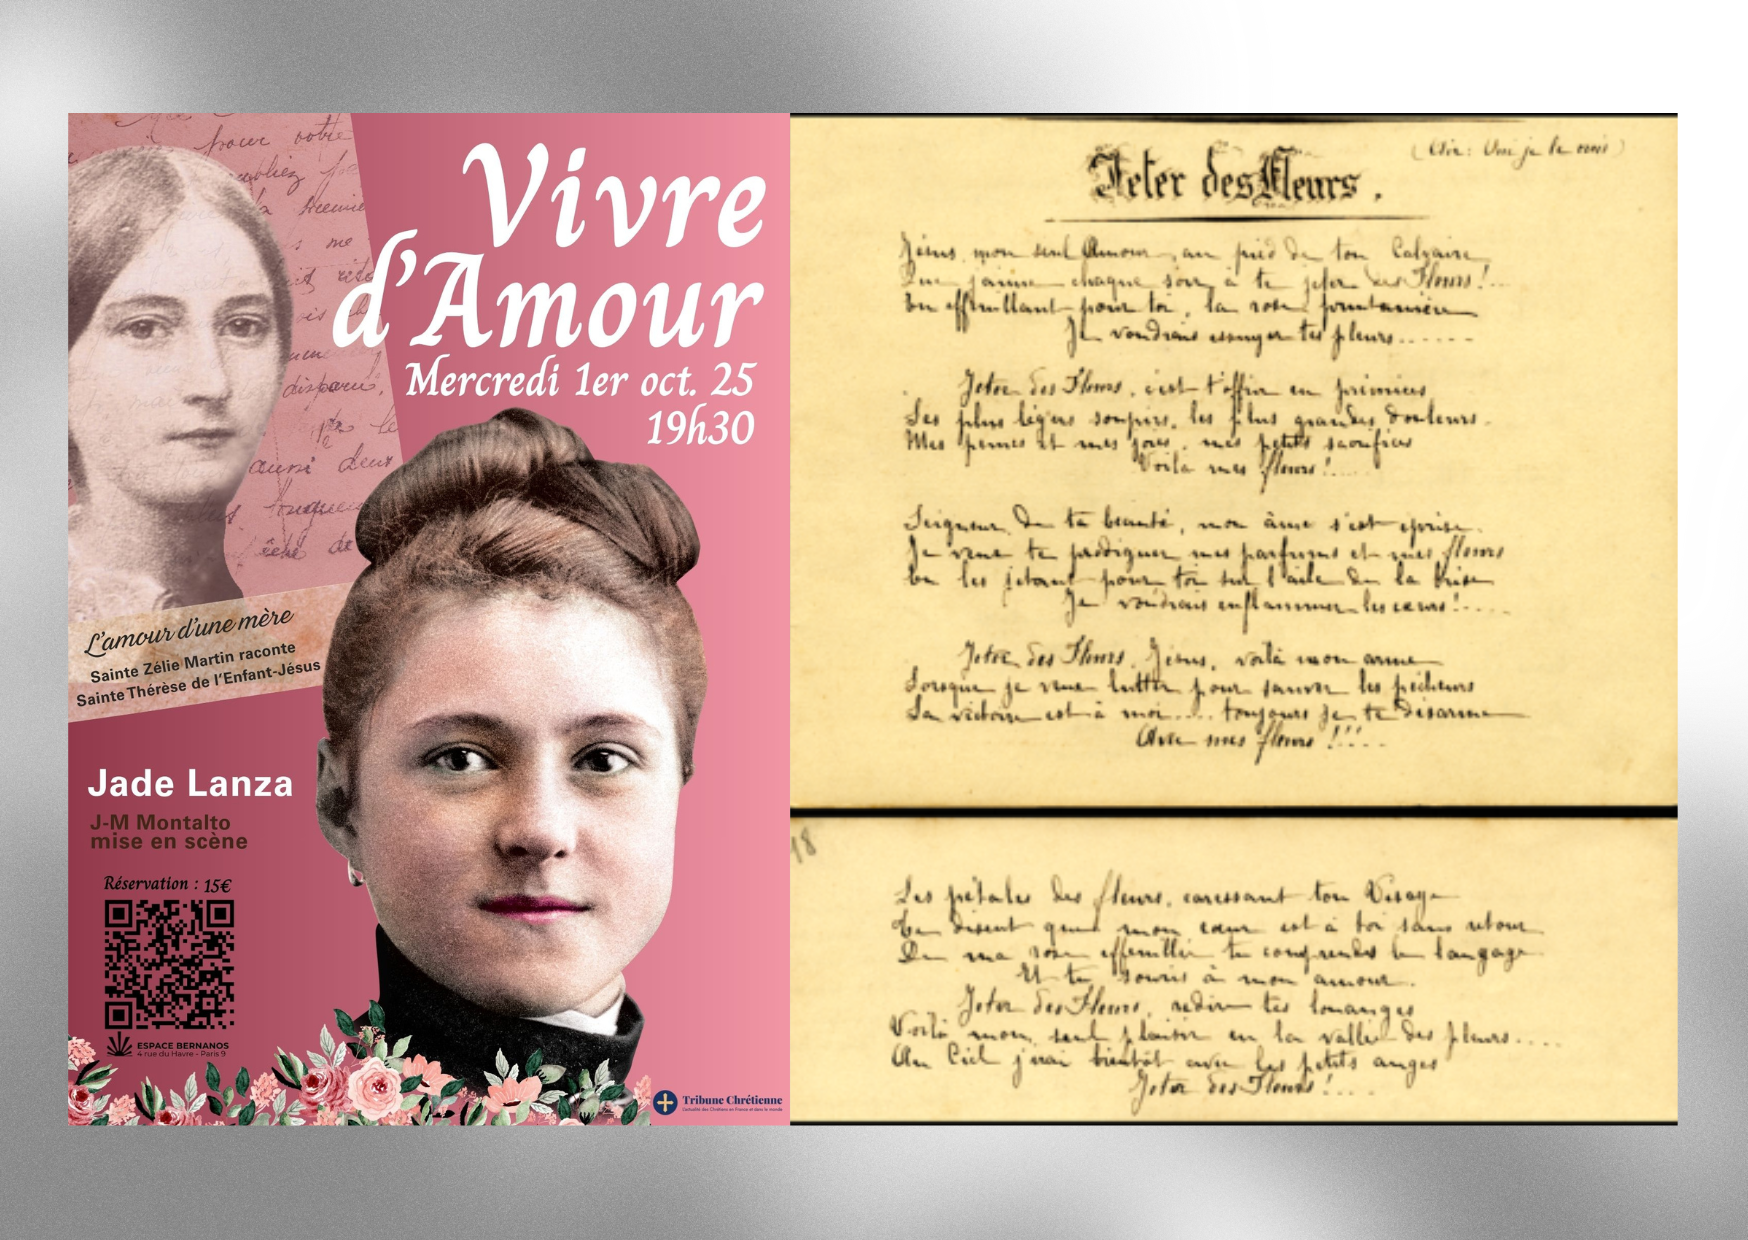 Vivre
d'Amour
Mercredi 1er oct. 25
19h30
L'amour d'une mère
Sainte Zélie Martin raconte
Sainte Thérèse de l'Enfant-Jésus
Jade Lanza
J-M Montalto
mise en scène
Réservation : 15€
ESPACE BERNANOS
4 rue du Havre - Paris 9
Tribune Chrétienne
L'actualité des Chrétiens en France et dans le monde
pacer votre
disparu,
aussi deux
de
(Air : Oui je le crois)
Jeter des Fleurs.
Jésus, mon seul Amour, au pied de ton Calvaire
Que j'aime chaque soir, à te jeter des Fleurs!...
En effeuillant pour toi, la rose printanière
Je voudrais essuyer tes pleurs......
Jeter des Fleurs, c'est t'offrir en prémices
Les plus légers soupirs, les plus grandes douleurs.
Mes peines et mes joies, mes petits sacrifices
Voilà mes fleurs!....
Seigneur, de ta beauté, mon âme s'est éprise.
Je veux te prodiguer mes parfums et mes fleurs
En les jetant pour toi sur l'aile de la brise
Je voudrais enflammer les cœurs!....
Jeter des Fleurs, Jésus, voilà mon arme
Lorsque je veux lutter pour sauver les pécheurs
La victoire est à moi.... toujours je te désarme
Avec mes fleurs!!!...
18
Les pétales des fleurs, caressant ton Visage
Te disent que mon cœur est à toi sans retour
De ma rose effeuillée tu comprends le langage
Et tu souris à mon amour.
Jeter des Fleurs, redire tes louanges
Voilà mon seul plaisir en la vallée des pleurs....
Au Ciel j'irai bientôt avec les petits anges
Jeter des Fleurs!...